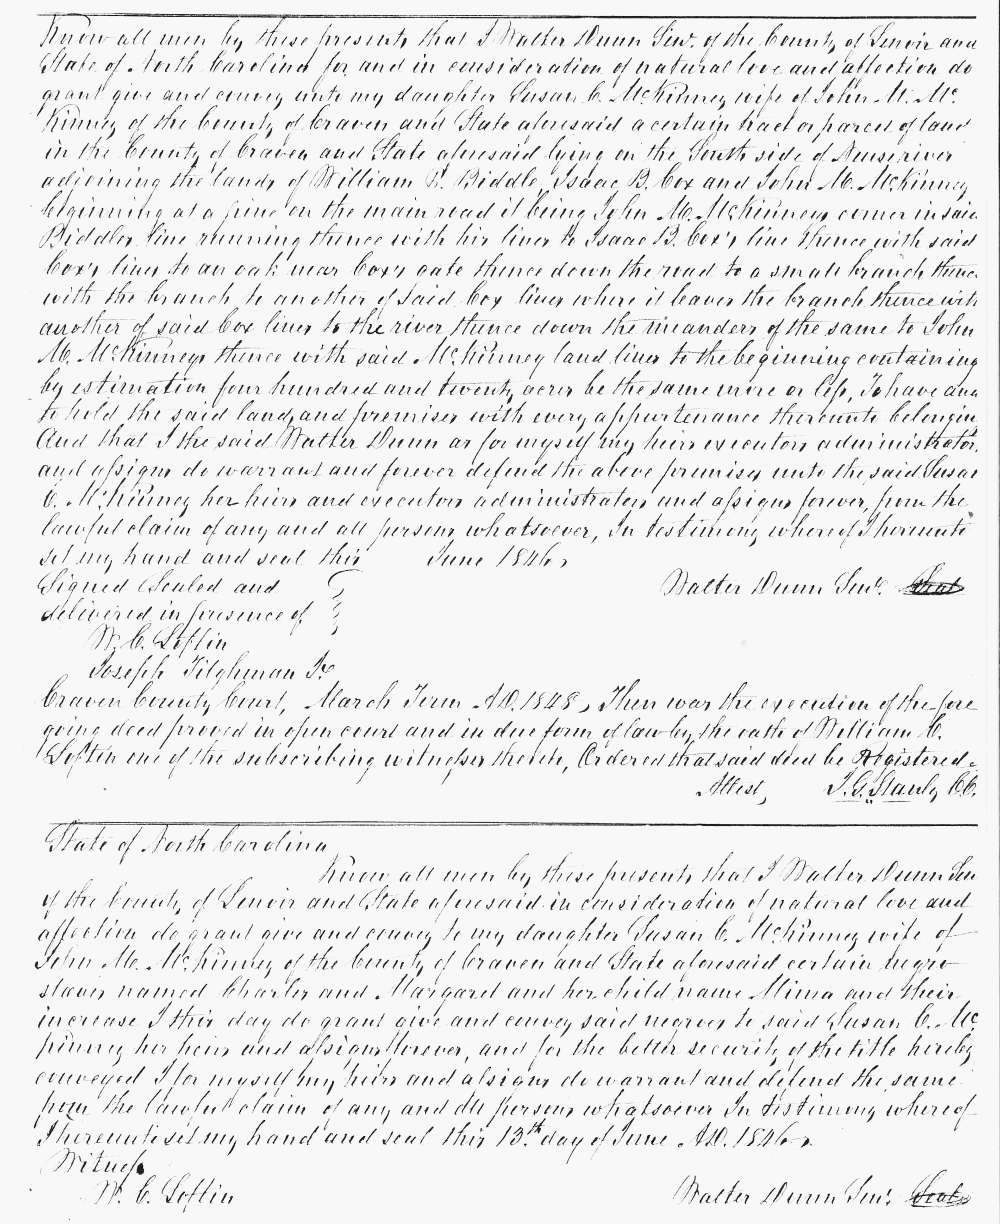 Know all men by these presents that I Walter Dunn Senr. of the County of Lenoir and
State of North Carolina for and in consideration of natural love and affection do
grant give and convey unto my daughter Susan C. McKinney wife of John M. Mc
Kinney of the County of Craven and State aforesaid a certain tract or parcel of land
in the County of Craven and State aforesaid lying on the South side of Neuse river
adjoining the lands of William P. Biddle, Isaac B. Cox and John M. McKinney
beginning at a pine on the main road it being John M. McKinneys corner in said
Biddles line running thence with his lines to Isaac B. Cox's line thence with said
Cox's lines to an oak near Cox's gate thence down the road to a small branch thence
with the branch to another of said Cox lines where it leaves the branch thence with
another of said Cox lines to the river thence down the meanders of the same to John
M. McKinneys thence with said McKinney land lines to the beginning containing
by estimation four hundred and twenty acres be the same more or less, To have and
to hold the said land and premises with every appurtenance thereunto belonging
And that I the said Walter Dunn as for myself my heirs executors administrators,
and assigns do warrant and forever defend the above premises unto the said Susan
C. McKinney her heirs and executors administrators and assigns forever, from the
lawful claim of any and all persons whatsoever, In testimony whereof I hereunto
set my hand and seal this June 1846,
Signed Sealed and Walter Dunn Senr. Seal
delivered in presence of
W. C. Loftin
Joseph Tilghman Jr
Craven County Court, March Term A.D. 1848, Then was the execution of the fore
going deed proved in open court and in due form of law by the oath of William C.
Loftin one of the subscribing witnesses thereto, Ordered that said deed be Registered.
Attest, J. G. Stanly C.C.
State of North Carolina
Know all men by these presents that I Walter Dunn Sen
of the County of Lenoir and State aforesaid in consideration of natural love and
affection do grant give and convey to my daughter Susan C. McKinney wife of
John M. McKinney of the County of Craven and State aforesaid certain negro
slaves named Charles and Margaret and her child name Mima and their
increase I this day do grant give and convey said negroes to said Susan C. Mc
Kinney her heirs and assigns forever, and for the better security of the title hereby
conveyed I for myself my heirs and assigns do warrant and defend the same
from the lawful claim of any and all persons whatsoever In testimony whereof
I hereunto set my hand and seal this 13th day of June A.D. 1846.
Witness
W. C. Loftin Walter Dunn Senr. Seal